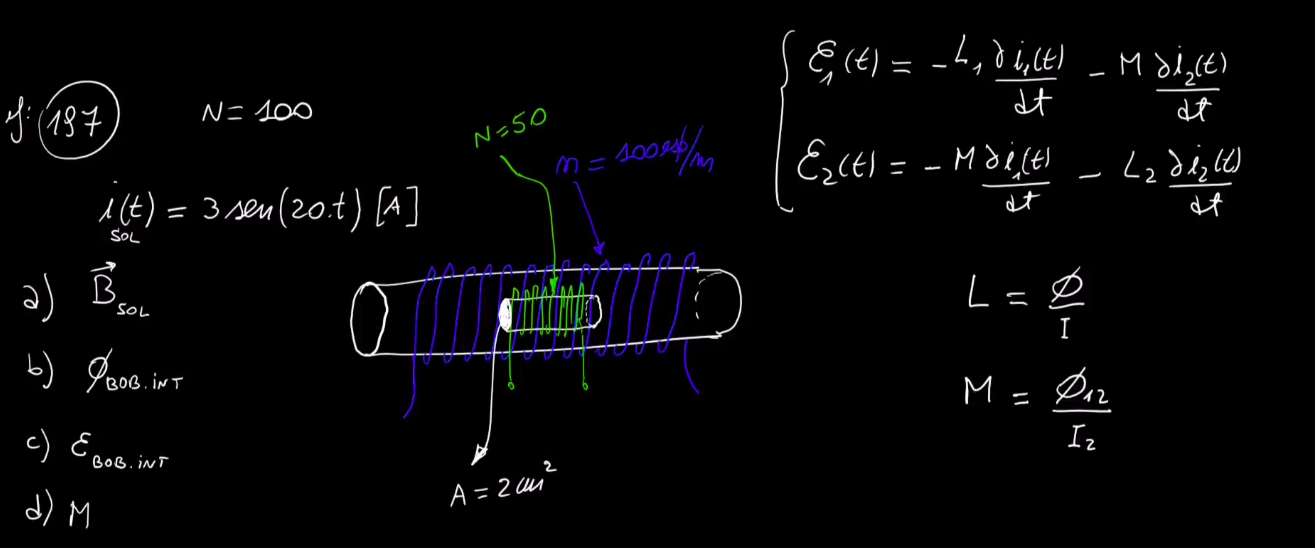 J: 197
N = 100
i(t) = 3 sen(20.t) [A]
SOL
a) B⃗ SOL
b) ϕ BOB.INT
c) ε BOB.INT
d) M
N = 50
n = 100 esp/m
A = 2 cm²
ℰ₁(t) = -L₁ ∂i₁(t)/dt - M ∂i₂(t)/dt
ℰ₂(t) = -M ∂i₁(t)/dt - L₂ ∂i₂(t)/dt
L = Ø/I
M = Ø₁₂/I₂